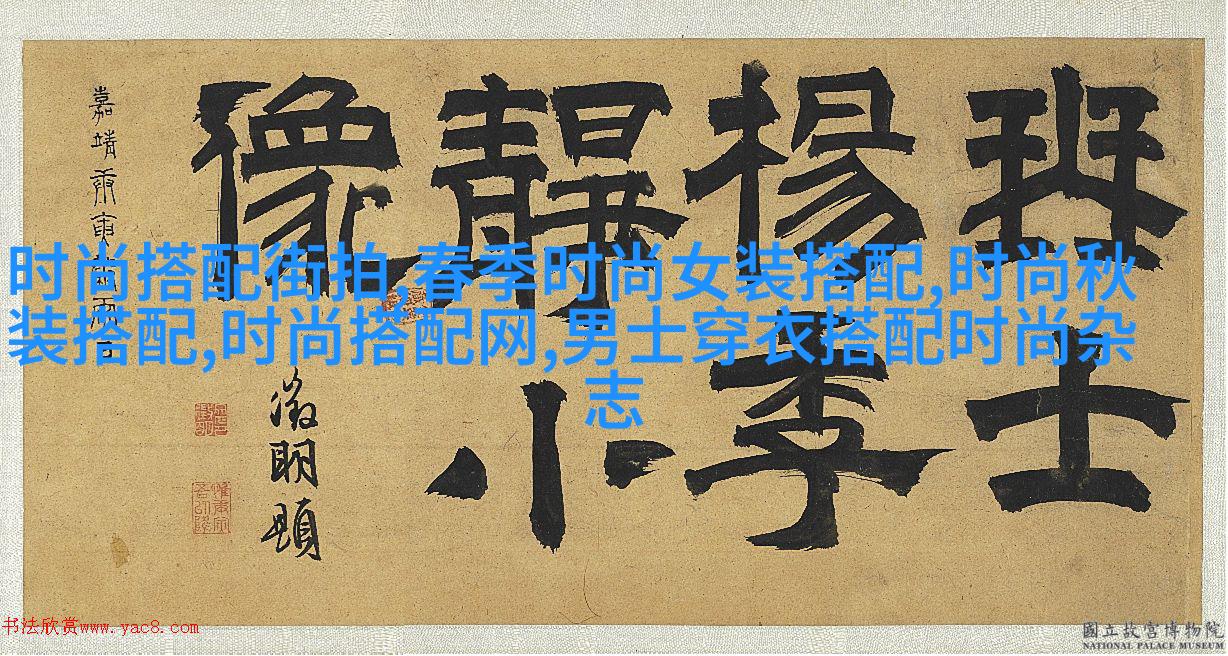 琴士
楊季
靜小
像
嘉靖庚寅
徵明題
时尚搭配街拍,春季时尚女装搭配,时尚秋
装搭配,时尚搭配网,男士穿衣搭配时尚杂
志
书法欣赏www.yac8.com
國立故宮博物院
NATIONAL PALACE MUSEUM